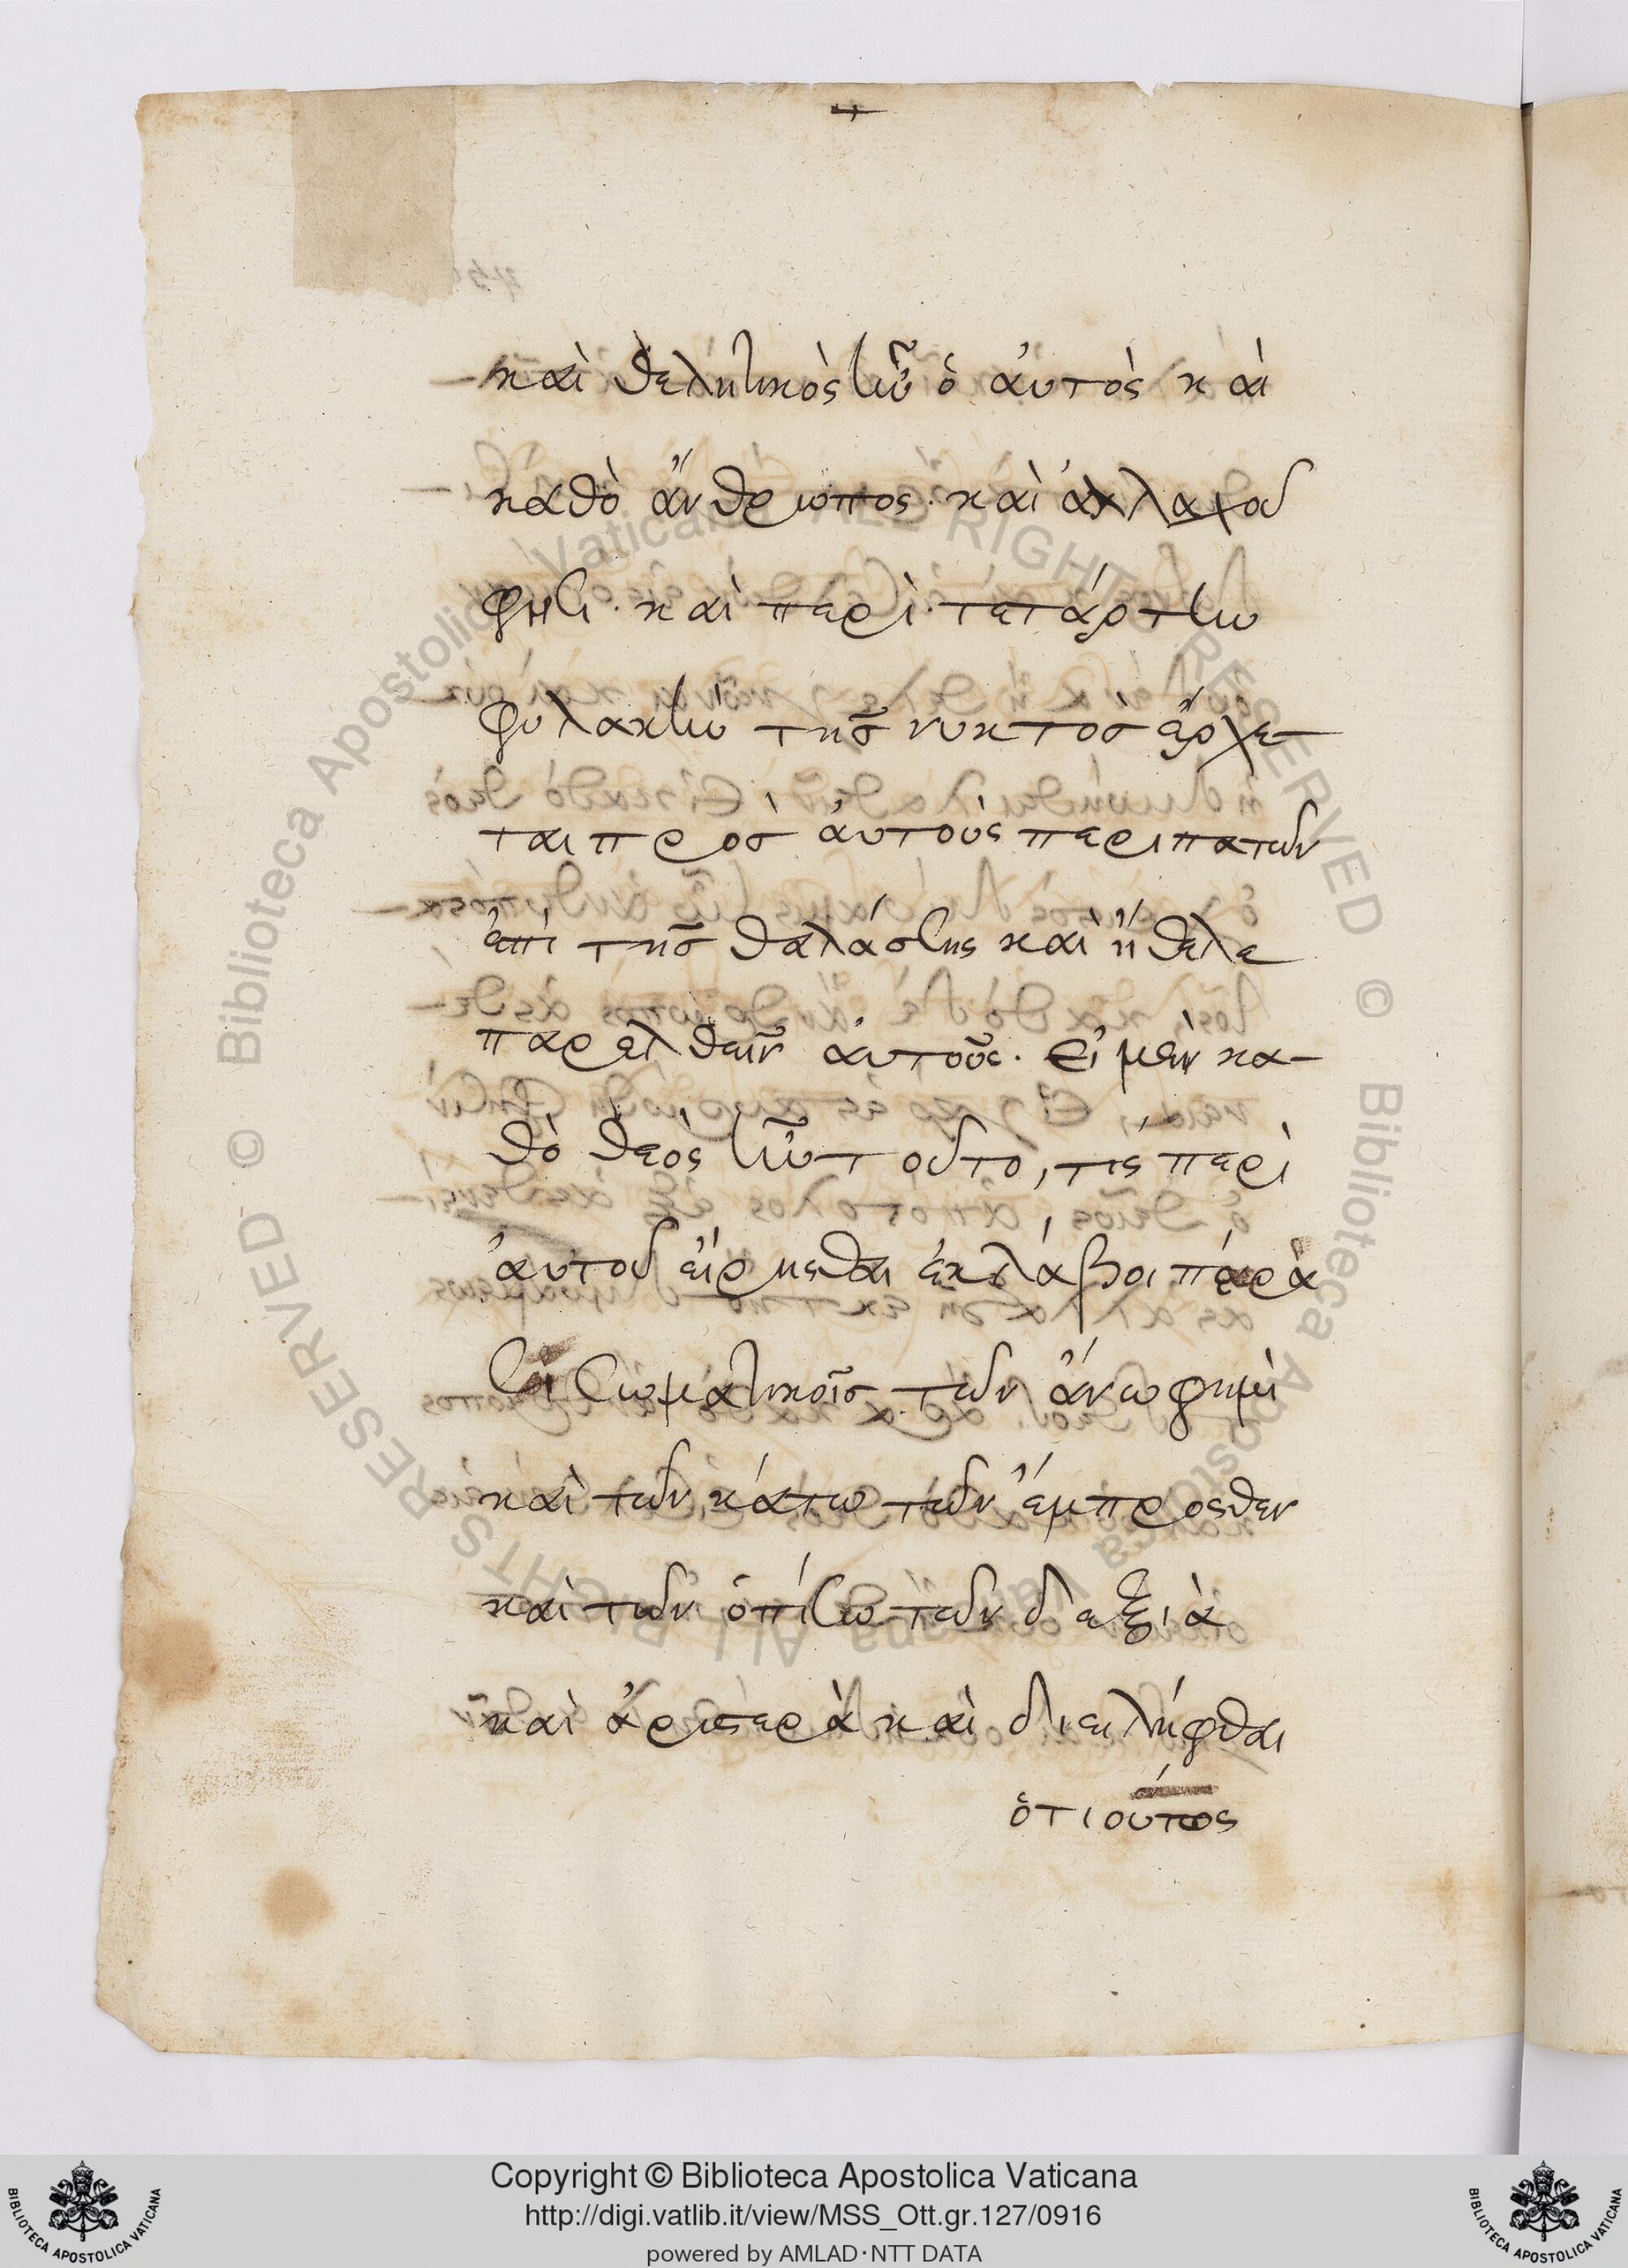 καὶ θελητικὸς ἦν ὁ ἀυτὸς καὶ
καθὸ ἄνθρωπος· καὶ ἀλλαχοῦ
φησι· καὶ περὶ τετάρτην
φυλακὴν τῆς νυκτὸς ἔρχε-
ται πρὸς ἀυτοὺς περιπατῶν
ἐπὶ τῆς θαλάσσης καὶ ἤθελε
παρελθεῖν ἀυτοῦς. Εἰ μὲν κα-
θὸ θεὸς ἦν τοῦτο, τίς περὶ
ἀυτοῦ εἰρῆσθαι ἐκλάβοι παρὰ
σωματικοῖς τῶν ἄνω φημὶ
καὶ τῶν κάτω τῶν ἔμπροσθεν
καὶ τῶν ὀπίσω τῶν δεξιὰ
καὶ ἀριστερὰ καὶ διειλήφθαι
ὅτι οὕτως
Copyright © Biblioteca Apostolica Vaticana
http://digi.vatlib.it/view/MSS_Ott.gr.127/0916
powered by AMLAD·NTT DATA
BIBLIOTECA APOSTOLICA VATICANA
BIBLIOTECA APOSTOLICA VATICANA
© Biblioteca Apostolica Vaticana ALL RIGHTS RESERVED
© Biblioteca Apostolica Vaticana ALL RIGHTS RESERVED